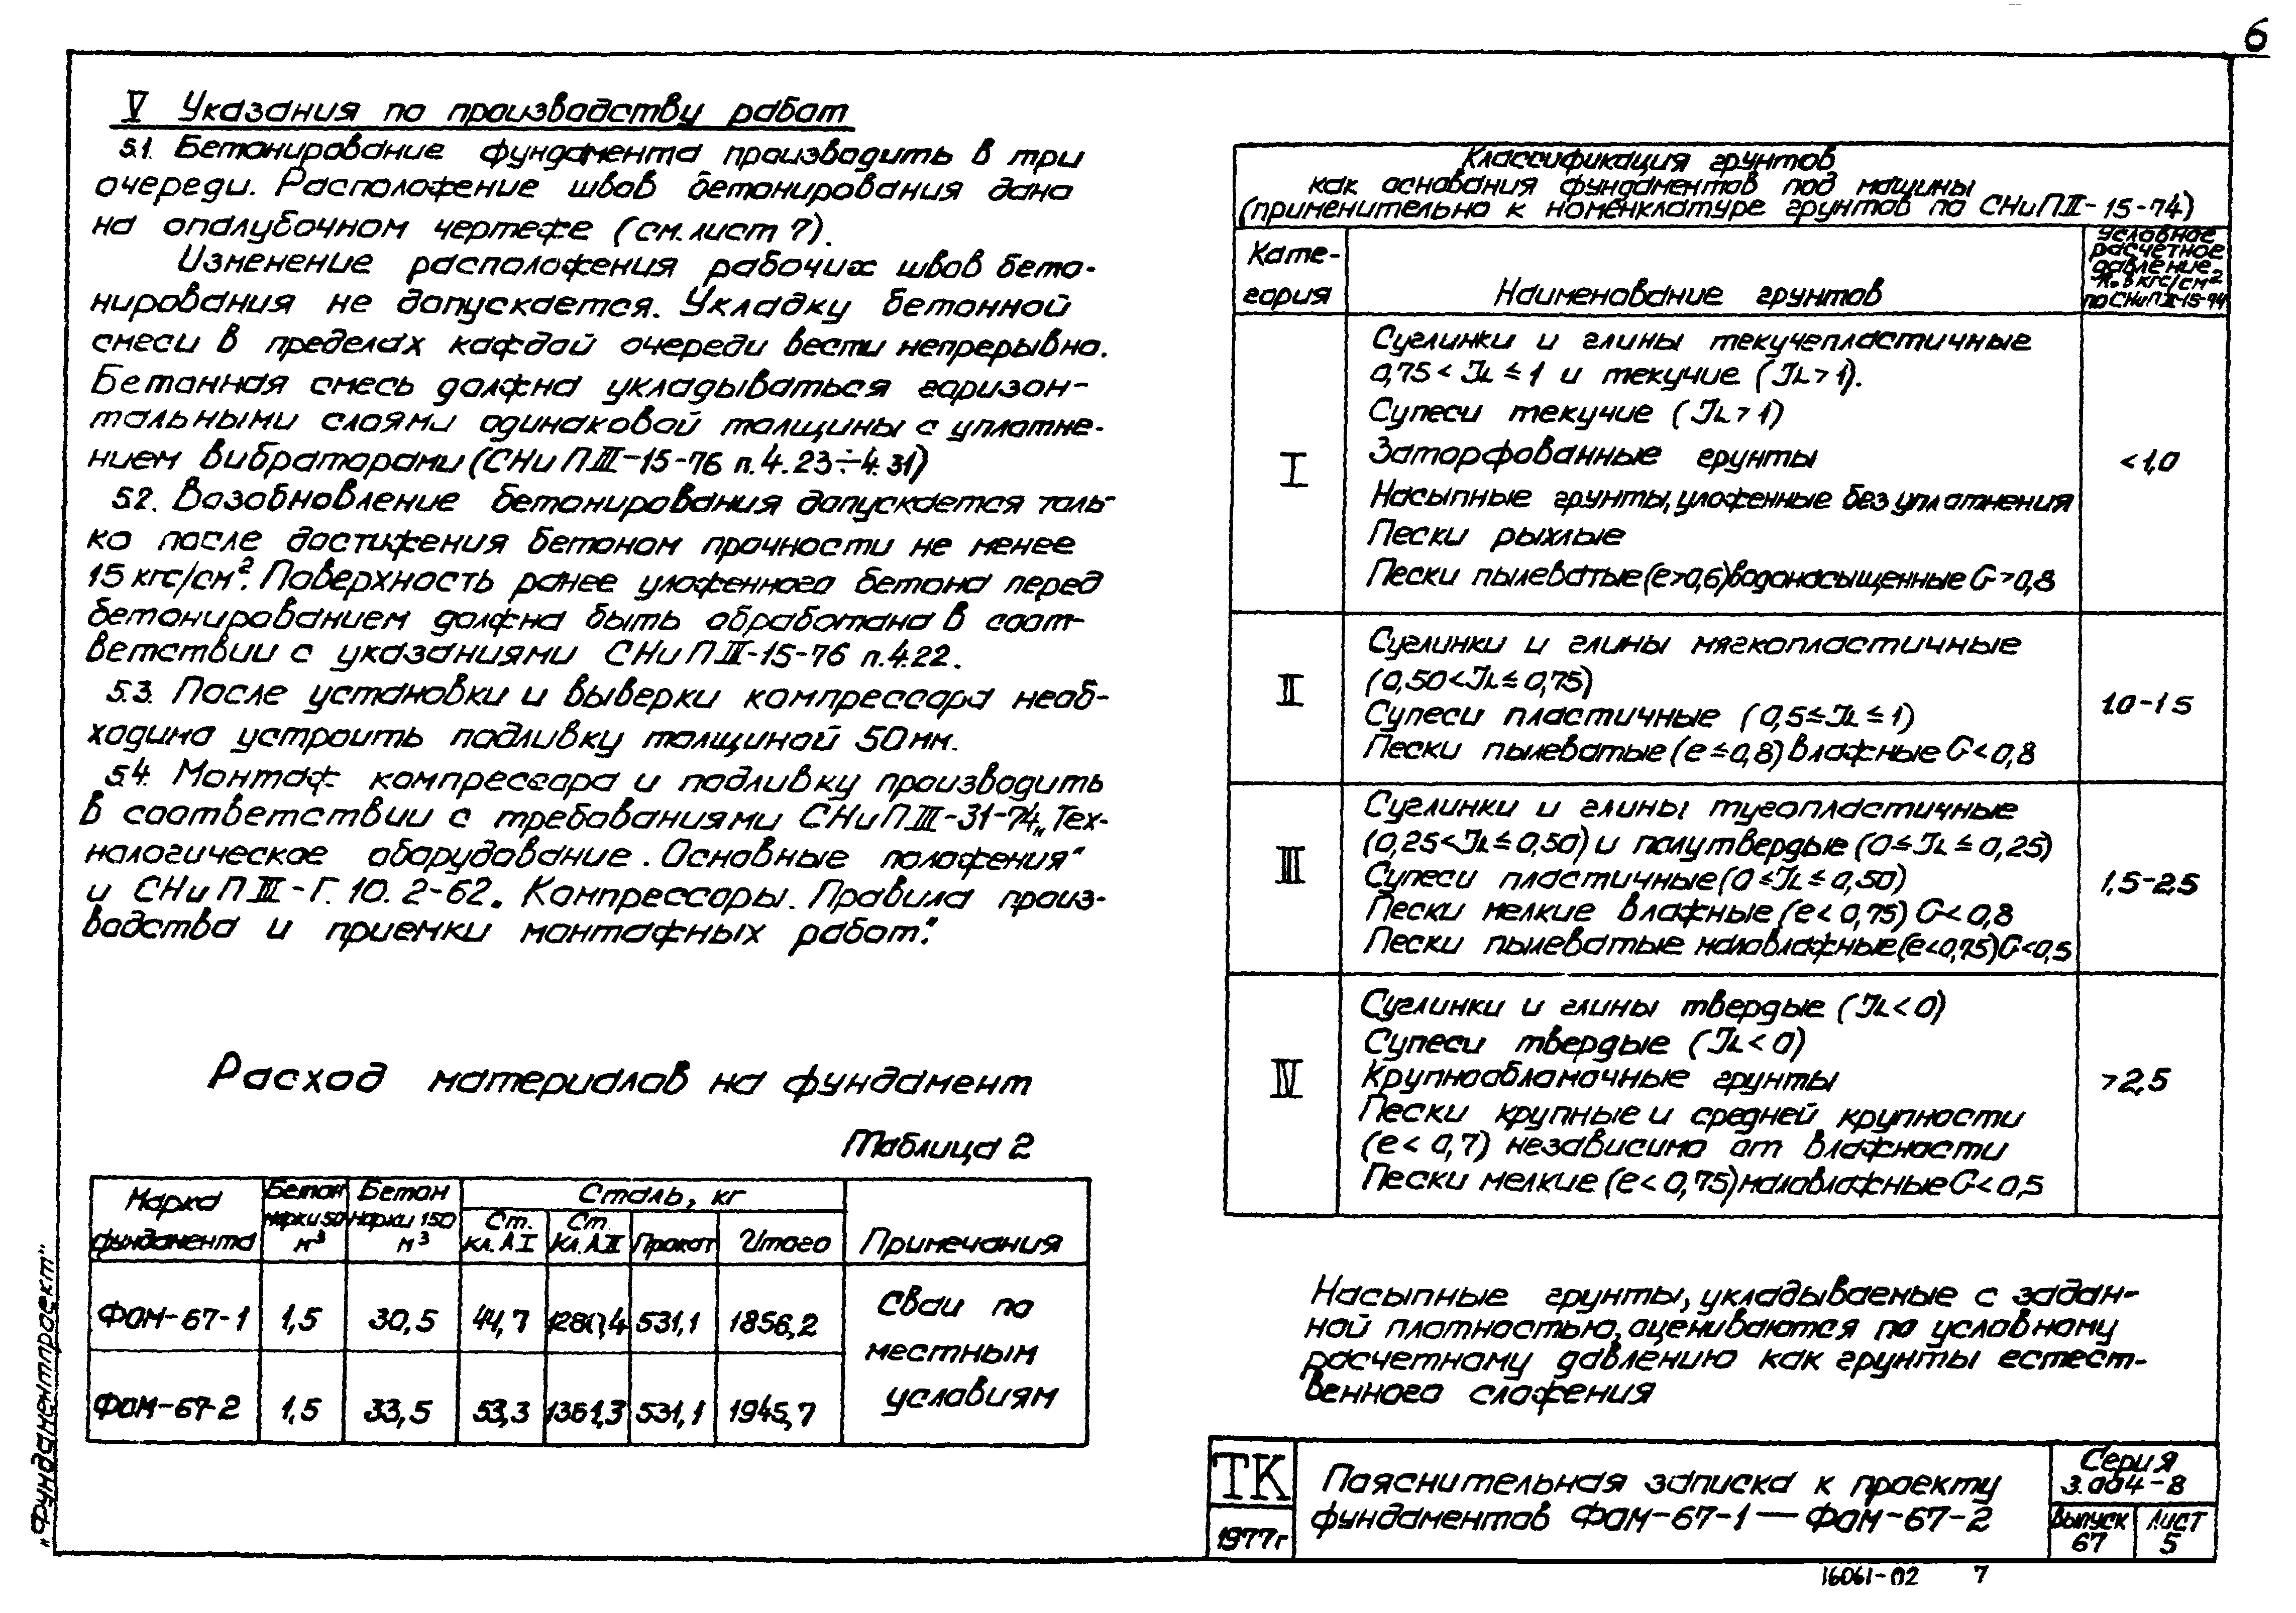 6
V Указания по производству работ
5.1. Бетонирование фундамента производить в три
очереди. Расположение швов бетонирования дано
на опалубочном чертеже (см. лист 7).
Изменение расположения рабочих швов бето-
нирования не допускается. Укладку бетонной
смеси в пределах каждой очереди вести непрерывно.
Бетонная смесь должна укладываться горизон-
тальными слоями одинаковой толщины с уплотне-
нием вибраторами (СНиП III-15-76 п.4.23÷4.31)
5.2. Возобновление бетонирования допускается толь-
ко после достижения бетоном прочности не менее
15 кгс/см². Поверхность ранее уложенного бетона перед
бетонированием должна быть обработана в соот-
ветствии с указаниями СНиП III-15-76 п.4.22.
5.3. После установки и выверки компрессора необ-
ходимо устроить подливку толщиной 50 мм.
5.4. Монтаж компрессора и подливку производить
в соответствии с требованиями СНиП III-31-74 „Тех-
нологическое оборудование. Основные положения“
и СНиП III-Г. 10. 2-62. Компрессоры. Правила произ-
водства и приемки монтажных работ.“
Расход материалов на фундамент
Таблица 2
Марка фундамента Бетон марки 50 м³ Бетон марки 150 м³ Сталь, кг Примечания
Ст. кл. А I Ст. Кл. А II Прокат Итого
ФОМ-67-1 1,5 30,5 44,7 1280,4 531,1 1856,2
ФОМ-67-2 1,5 33,5 53,3 1361,3 531,1 1945,7
Сваи по
местным
условиям
Классификация грунтов
как основания фундаментов под машины
(применительно к номенклатуре грунтов по СНиП II-15-74)
Кате-
гория
Наименование грунтов
Условное
расчетное
давление
R₀ в кгс/см²
по СНиП II-15-74
I
Суглинки и глины текучепластичные
0,75 < IL ≤ 1 и текучие (IL > 1).
Супеси текучие (IL > 1)
Заторфованные грунты
Насыпные грунты, уложенные без уплотнения
Пески рыхлые
Пески пылеватые (e > 0,6) водонасыщенные G > 0,8
< 1,0
II
Суглинки и глины мягкопластичные
(0,50 < IL ≤ 0,75)
Супеси пластичные (0,5 ≤ IL ≤ 1)
Пески пылеватые (e ≤ 0,8) влажные G < 0,8
1.0-1 5
III
Суглинки и глины тугопластичные
(0,25 < IL ≤ 0,50) и полутвердые (0 ≤ IL ≤ 0,25)
Супеси пластичные (0 ≤ IL ≤ 0,50)
Пески мелкие влажные (e < 0,75) G < 0,8
Пески пылеватые маловлажные (e < 0,75) G < 0,5
1,5-2.5
IV
Суглинки и глины твердые (IL < 0)
Супеси твердые (IL < 0)
Крупнообломочные грунты
Пески крупные и средней крупности
(e < 0,7) независимо от влажности
Пески мелкие (e < 0,75) маловлажные G < 0,5
> 2,5
Насыпные грунты, укладываемые с задан-
ной плотностью, оцениваются по условному
расчетному давлению как грунты естест-
венного сложения
„Фундаментпроект“
ТК
1977г
Пояснительная записка к проекту
фундаментов ФОМ-67-1 — ФОМ-67-2
Серия
3.004-8
Выпуск
67
Лист
5
16061-02 7